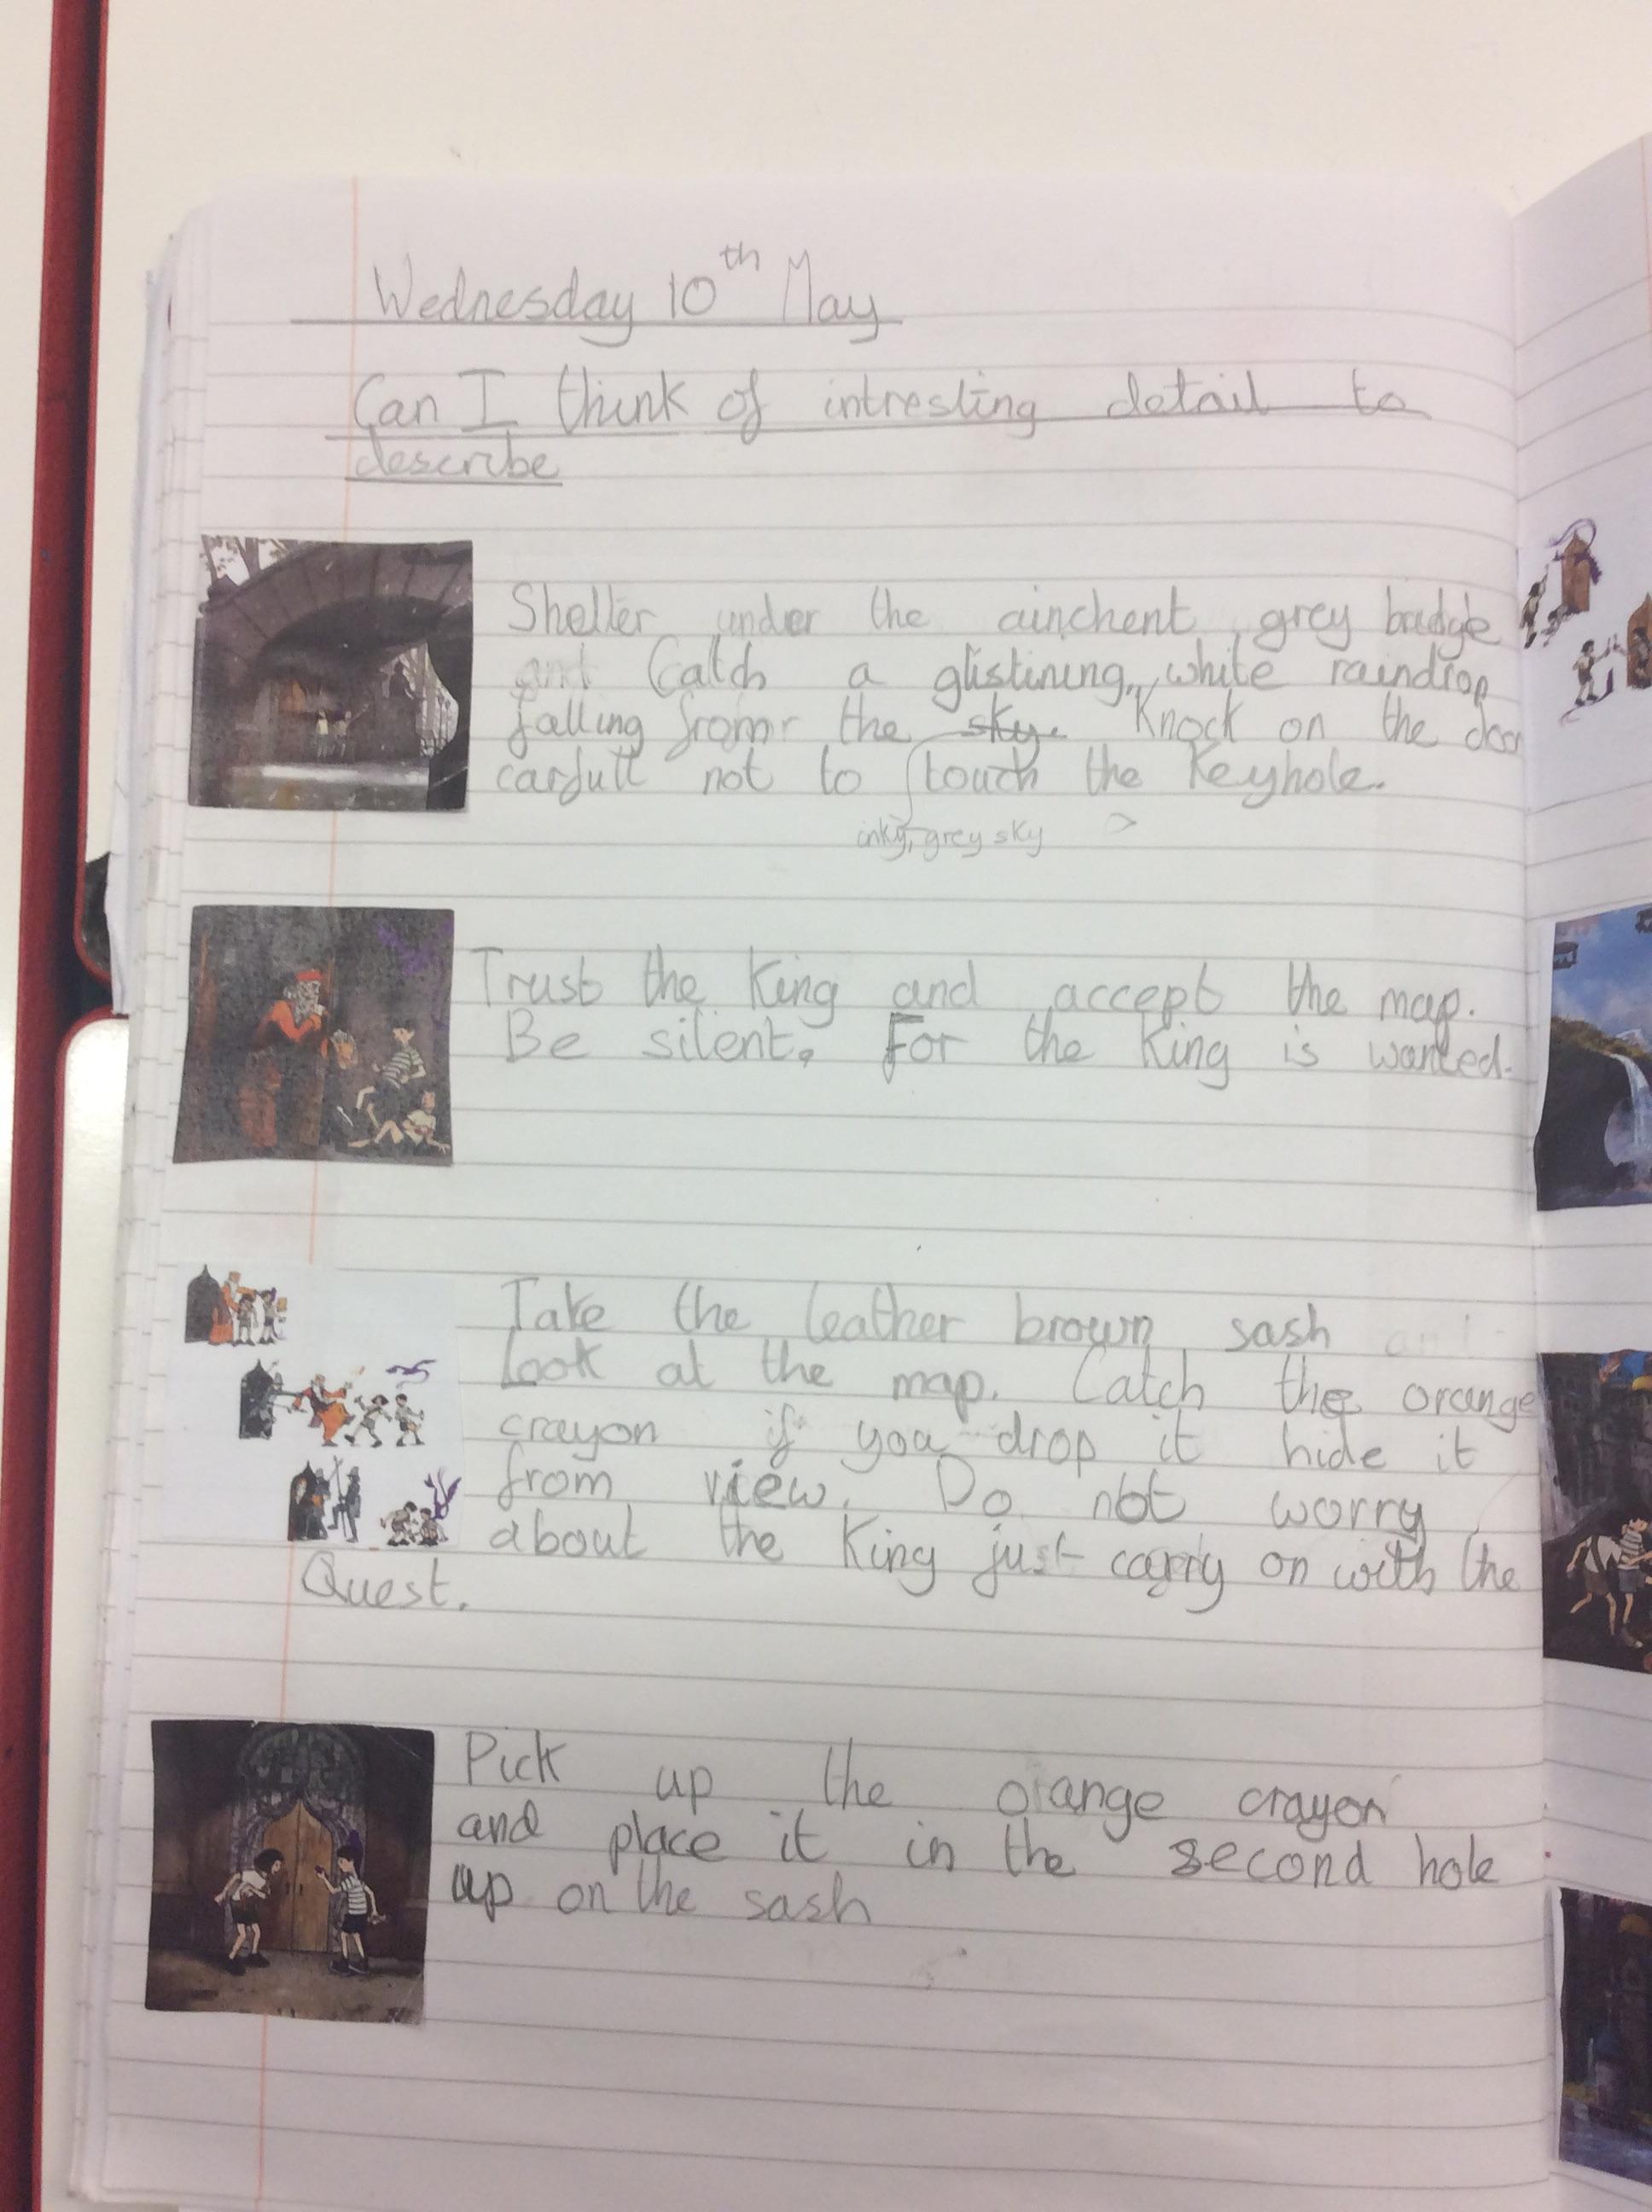 Wednesday 10th May
Can I think of intresting detail to
describe
Shelter under the ainchent, grey bridge
and Catch a glistining, white raindrop
falling from the sky. Knock on the door
carfull not to touch the Keyhole.
inky, grey sky
Trust the King and accept the map.
Be silent. For the King is wanted.
Take the leather brown sash and
Look at the map. Catch the orange
crayon if you drop it hide it
from view. Do not worry
about the King just carry on with the
Quest.
Pick up the orange crayon
and place it in the second hole
up on the sash